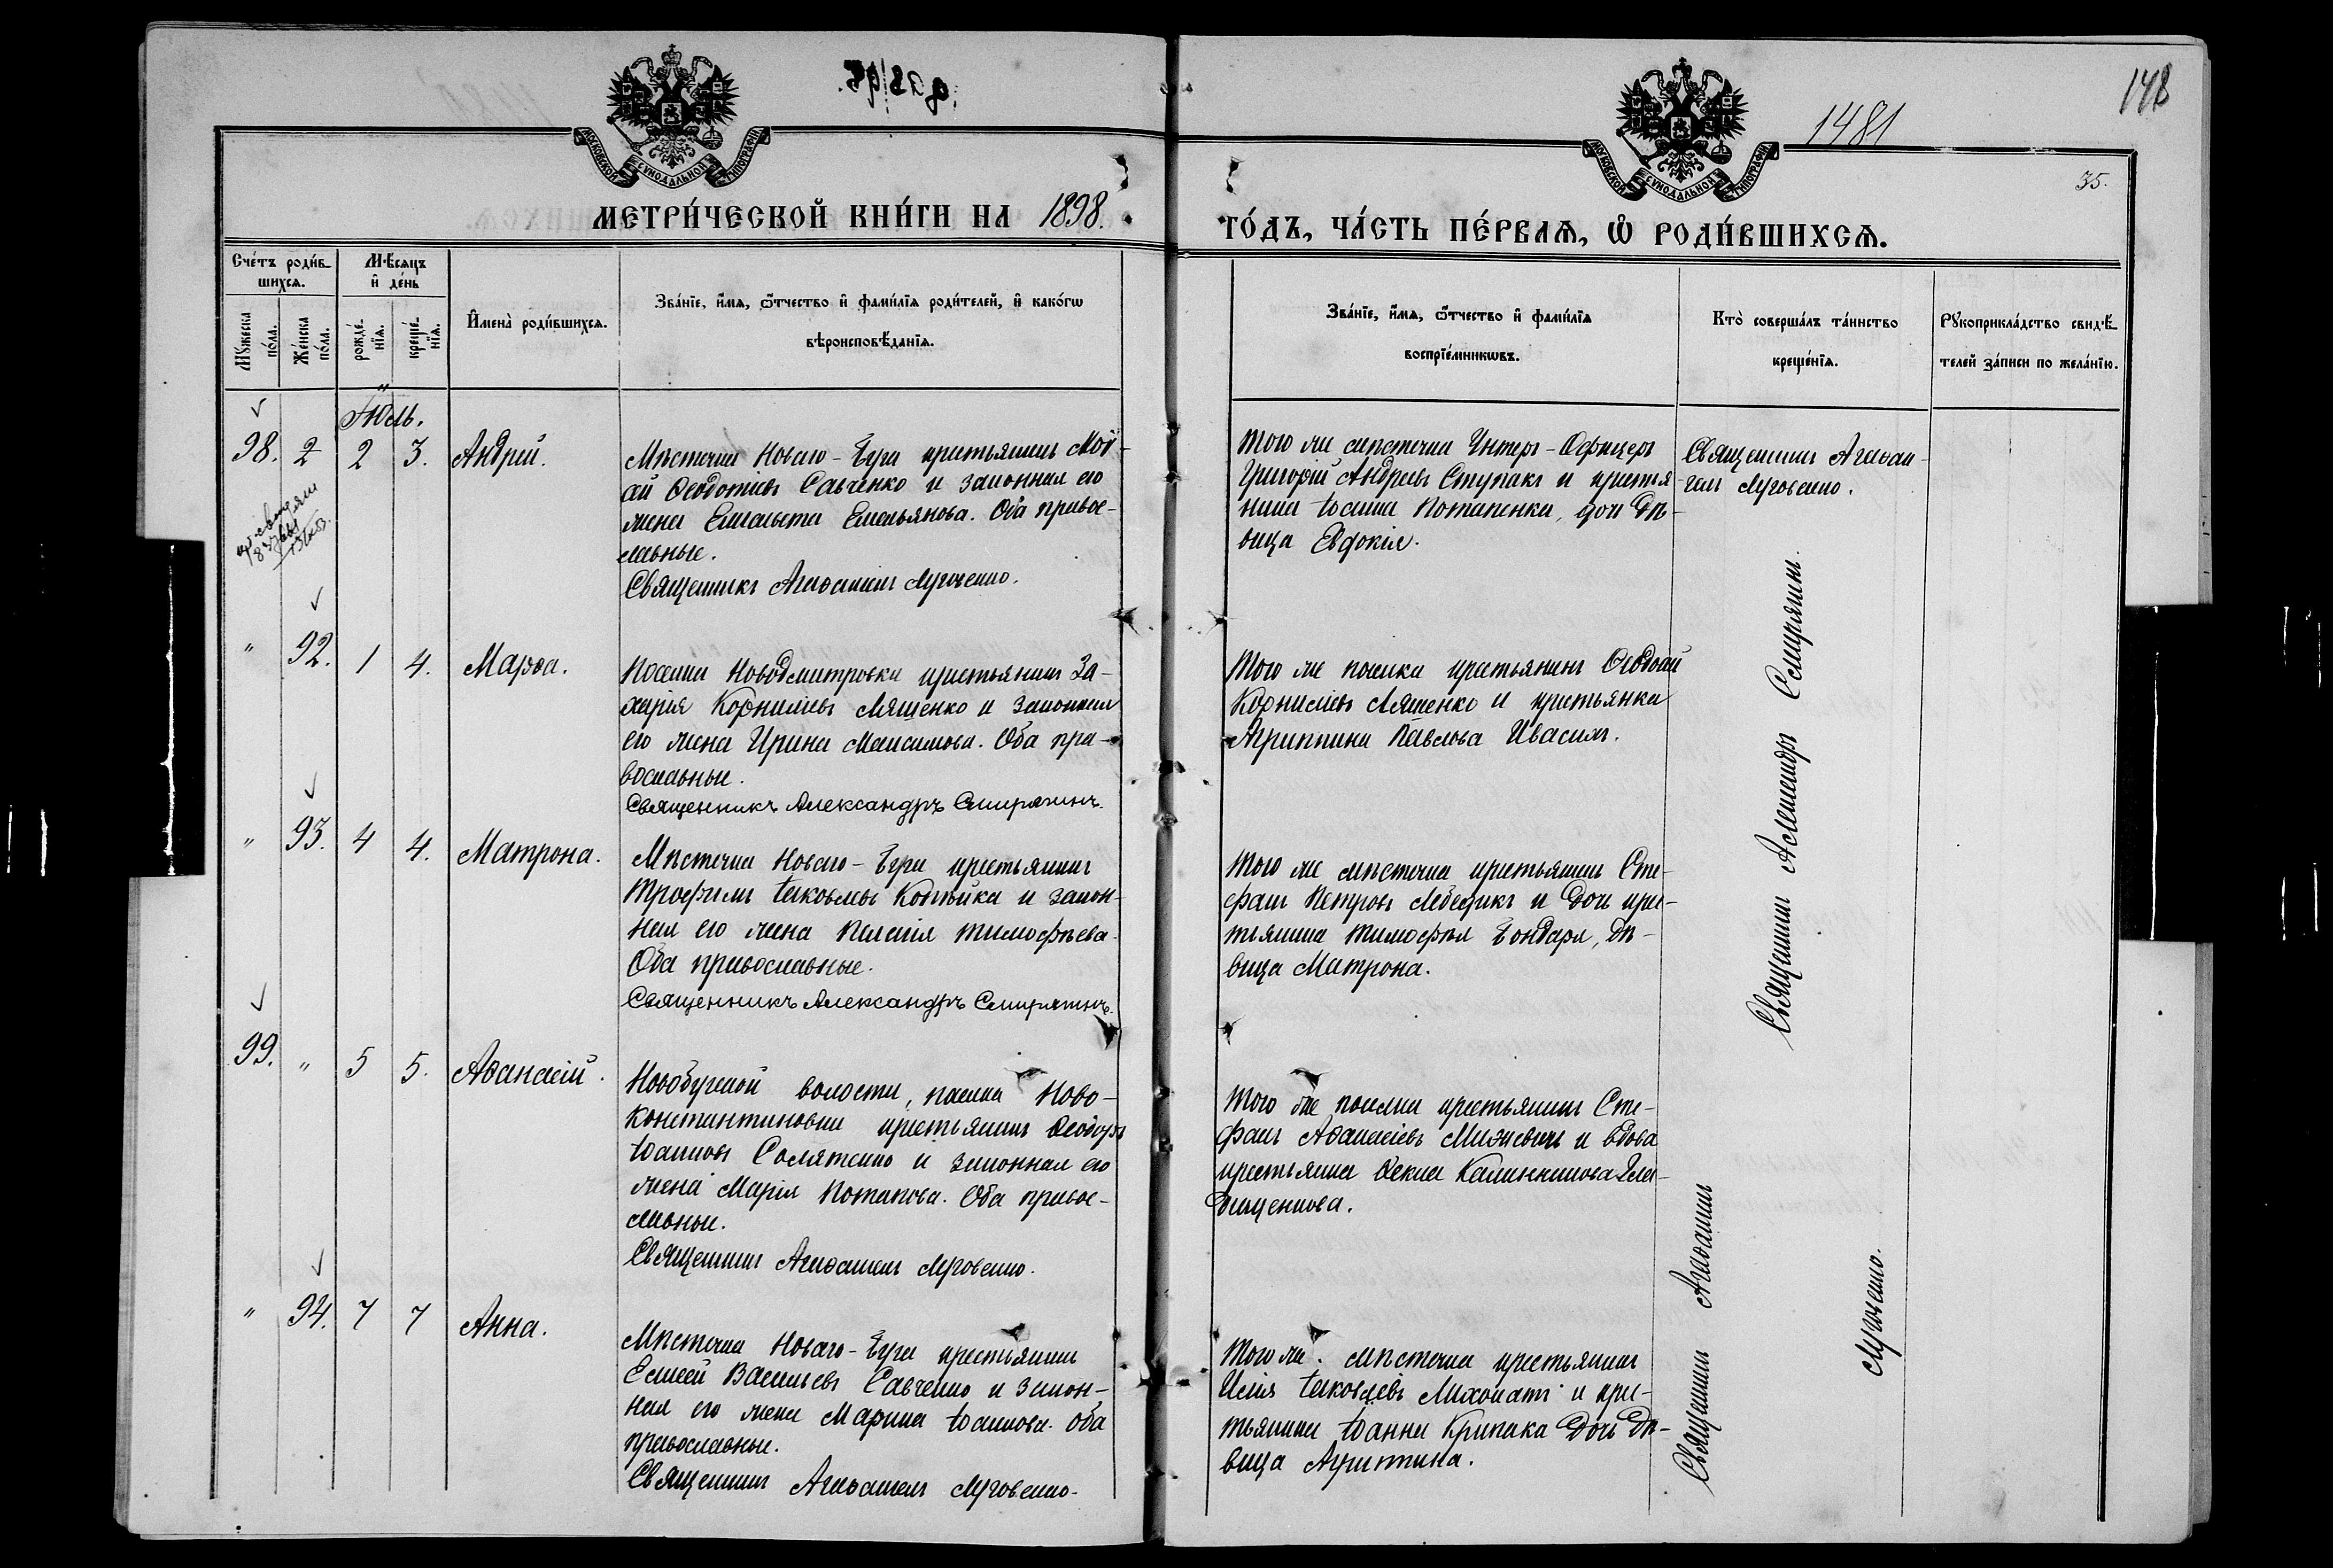 1481
148
35.
МОСКОВСКОЙ СѴНОДАЛЬНОЙ ТИПОГРАФІИ
МОСКОВСКОЙ СѴНОДАЛЬНОЙ ТИПОГРАФІИ
МЕТРИ́ЧЕСКОЙ КНИ́ГИ НА 1898.
ГО́ДЪ, ЧА́СТЬ ПЕ́РВАѦ, Ѡ РОДИ́ВШИХСѦ.
Сче́тъ роди́в-
шихсѧ.
Мѣ́сяцъ
и де́нь
Му́жеска
по́ла.
Же́нска
по́ла.
рожде́-
нїѧ.
креще́-
нїѧ.
Имена̀ роди́вшихсѧ.
Зва́нїе, и́мѧ, ѻ҆́тчество и фами́лїѧ роди́телей, и како́гѡ
вѣроисповѣ́данїѧ.
Зва́нїе, и́мѧ, ѻ҆́тчество и фами́лїѧ
воспрїе́мникѡвъ.
Кто̀ соверша́лъ та́инство
креще́нїѧ.
Рꙋкоприкла́дство свидѣ́-
телей за́писи по жела́нїю.
Іюль.
98. 2 2 3. Андрей.
Мѣстечка Новаго-Буга крестьянинъ Мой-
сей Ѳеодотіевъ Савченко и законная его
жена Елисавета Емельянова. Оба правос-
лавные.
Священникъ Агаѳангелъ Луговенко.
Того же мѣстечка Унтеръ-Офицеръ
Григорій Андреевъ Ступакъ и крестья-
нина Іосифа Потапенка, дочь дѣ-
вица Евдокія.
Священникъ Агаѳан-
гелъ Луговенко.
" 92. 1 4. Марѳа.
Поселка Новодмитровки крестьянинъ За-
харія Корниліевъ Ляшенко и законная
его жена Ирина Максимова. Оба пра-
вославные.
Священникъ Александръ Смирягинъ.
Того же поселка крестьянинъ Ѳеодосій
Корниліевъ Ляшенко и крестьянка
Агриппина Павлова Ивасюкъ.
" 93. 4 4. Матрона.
Мѣстечка Новаго-Буга крестьянинъ
Трофимъ Іаковлевъ Копѣйка и закон-
ная его жена Пелагія Тимофѣева.
Оба православные.
Священникъ Александръ Смирягинъ.
Того же мѣстечка крестьянинъ Сте-
фанъ Петровъ Лебедикъ и дочь крес-
тьянина Тимофѣя Бондаря, дѣ-
вица Матрона.
Священникъ Александръ Смирягинъ.
99. " 5 5. Аѳанасій.
Новобугской волости, поселка Ново-
константиновки крестьянинъ Ѳеодоръ
Іоанновъ Солятенко и законная его
жена Марія Потапова. Оба правос-
лавные.
Священникъ Агаѳангелъ Луговенко.
Того же поселка крестьянинъ Сте-
фанъ Аѳанасіевъ Михневичъ и вдова
крестьянка Ѳекла Калинникова
" 94. 7 7 Анна.
Мѣстечка Новаго-Буга крестьянинъ
Елисей Васильевъ Савченко и закон-
ная его жена Марина Іоаннова. Оба
православные.
Священникъ Агаѳангелъ Луговенко.
Того же мѣстечка крестьянинъ
Илія Іаковлевъ и крес-
тьянина Іоанна Крипака дочь дѣ-
вица Агриппина.
Священникъ Агаѳангелъ
Луговенко.